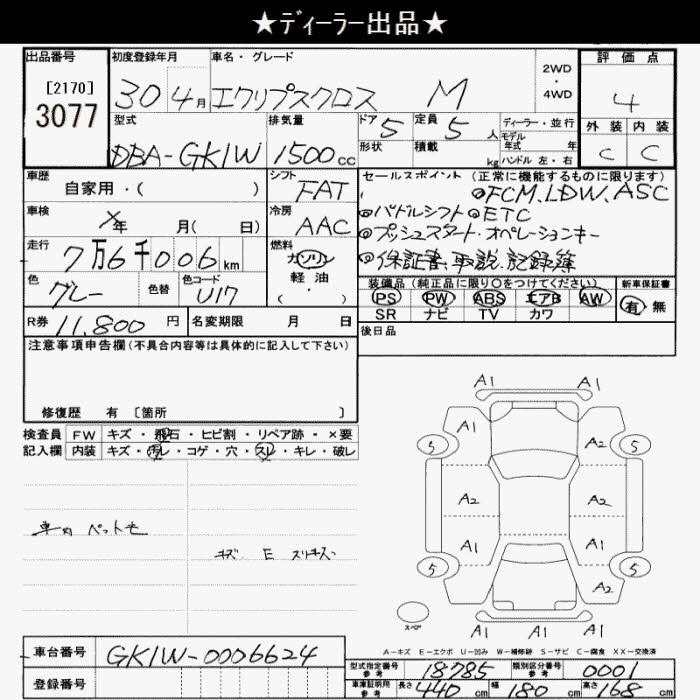 ★ディーラー出品★
出品番号
[2170]
3077
初度登録年月
30 4月
車名・グレード
エクリプスクロス M
2WD
・
4WD
評価点
4
外装 内装
C C
型式
DBA-GK1W
排気量
1500cc
ドア 5
形状
定員 5 人
積載 kg
ディーラー・並行
モデル
年式 年
ハンドル 左・右
車歴
自家用・( )
シフト
FAT
車検
年 月( 日)
冷房
AAC
走行
7万6千006km
燃料
ガソリン
軽油
( ・ )
色
グレー
色替
色コード
U17
R券 11,800 円
名変期限 月 日
セールスポイント (正常に機能するものに限ります)
◎FCM.LDW.ASC
◎パドルシフト◎ETC
◎プッシュスタート.オペレーションキー
◎保証書.取説.記録簿
装備品(純正品に限り○をつけてください)
PS PW ABS エアB AW
SR ナビ TV カワ
新車保証書
有 無
後日品
注意事項申告欄(不具合内容等は具体的に記入して下さい)
修復歴 有 〔箇所 〕
検査員 FW キズ・飛石・ヒビ割・リペア跡・×要
記入欄 内装 キズ・汚レ・コゲ・穴・スレ・キレ・破レ
車内 ペット毛
キズ E スリキズ
A1 A1
A1 A2
5 5
A2 A2
A1 A1
5 5
A2
A1 A1
スペア
A-キズ E-エクボ U-凹み W-補修跡 S-サビ C-腐食 XX-交換済
車台番号 GK1W-0006624
登録番号
型式指定番号
参考
18785
類別区分番号
参考
0001
車庫証明用
参考
長さ 440 cm 幅 180 cm 高さ 168 cm